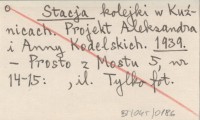 Stacja kolejki w Kuź-
nicach. Projekt Aleksandra
i Anny Kodelskich. 1939.
– Prosto z Mostu 5, nr
14-15: , il. Tylko fot.